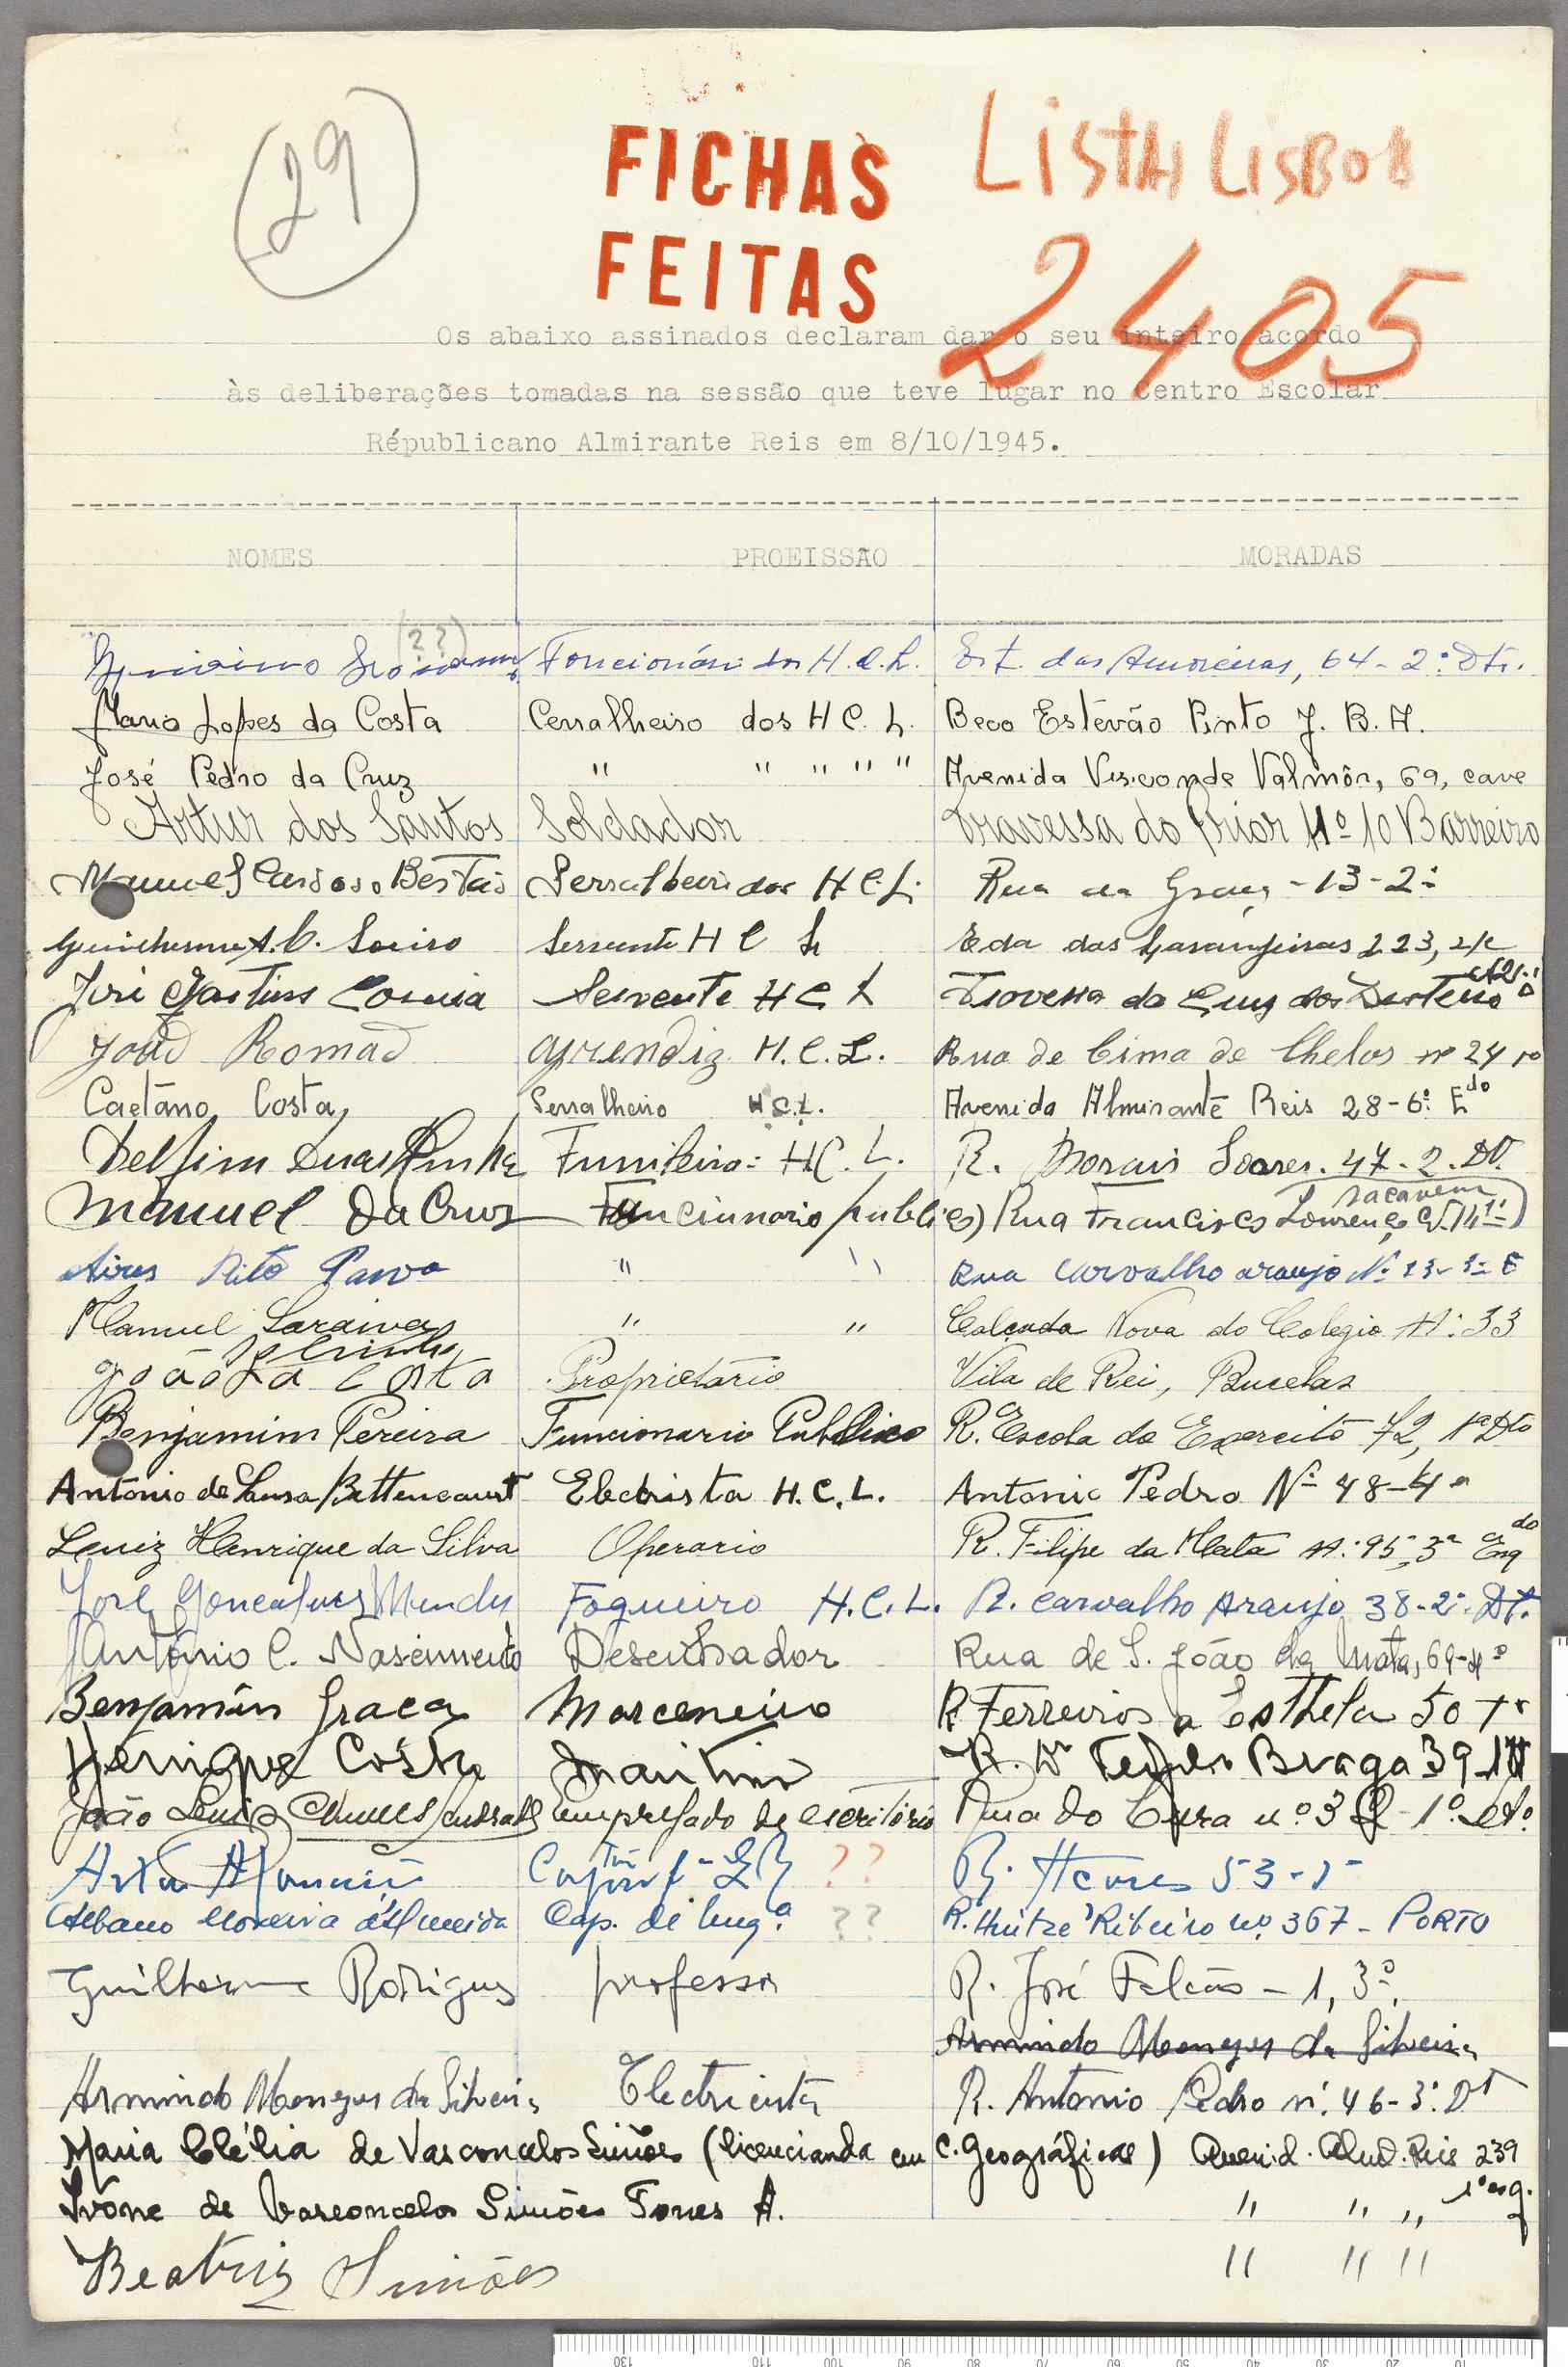 29
FICHAS
FEITAS
LISTA LISBOA
2405
Os abaixo assinados declaram dar o seu inteiro acordo
às deliberações tomadas na sessão que teve lugar no Centro Escolar
Républicano Almirante Reis em 8/10/1945.
NOMES PROEISSÃO MORADAS
(??) H.C.L. Est. das Amoreiras, 64-2º Dtº.
Mario Lopes da Costa Cerralheiro dos H C. L. Beco Estêvão Pinto J. B. A.
José Pedro da Cruz " " " " " Avenida Visconde Valmôr, 69, cave
Artur dos Santos Soldador Travessa do Prior Nº 10 Barreiro
Manuel Cardoso Bertas H C.L. Rua da Graça - 13 - 2º
Servente H C L das Laranjeiras 223, r/c
José Martins Correia Servente H C L Travessa da Cruz dos
João Romão aprendiz H. C. L. Rua de Cima de Chelas nº 24
Caetano Costa, Serralheiro H C.L. Avenida Almirante Reis 28-6º Edo
Delfim Funileiro: H.C.L. R. Morais Soares. 47-2. Dº.
Manuel Da Cruz Funcionnario publico) Rua Francisco Lourenço Nº 14 Sacavem)
Aires Paiva " " Rua Carvalho araujo Nº
Manuel Saraiva " " Calçada Nova do Colegio Nº 33
João da Costa Proprietário Vila de Rei, Bucelas
Benjamim Pereira Funcionario Publico R. Escola do Exercito 72, 1º Dto
António de Sousa Bettencourt Electrista H.C.L. Antonio Pedro Nº 48-4º
Luiz Henrique da Silva Operario R. Filipe da Mata Nº 95, 3º Esqdo
José Gonçalves Mendes Foqueiro H.C.L. R. Carvalho Araujo 38-2º Dt.
António C. Nascimento Desenhador Rua de S. João da Mata, 69-4º
Benjamin Graça Marceneiro R Ferreiros a Esthela 50
Henrique Costa Maritimo R. Dr Teofilo Braga 39
João Luis Empregado de escritório Rua do Cura nº 3
?? 53-1º
Albano Moreira d'Almeida Cap. de Engª. ?? R. Hintze Ribeiro nº. 367 - PORTO
Guilherme Rodrigues professor R. José Falcão - 1, 3º,
Armindo Menezes da Silveira
Armindo Menezes da Silveira Electricista R. Antonio Pedro nº. 46-3º. Dt
Maria Clélia de Vasconcelos Simões (licencianda em C. Geográficas) Avenid. Almd. Reis 239
1º esq.
Ivone de Vasconcelos Simões Torres A. " " "
Beatriz Simões " " "